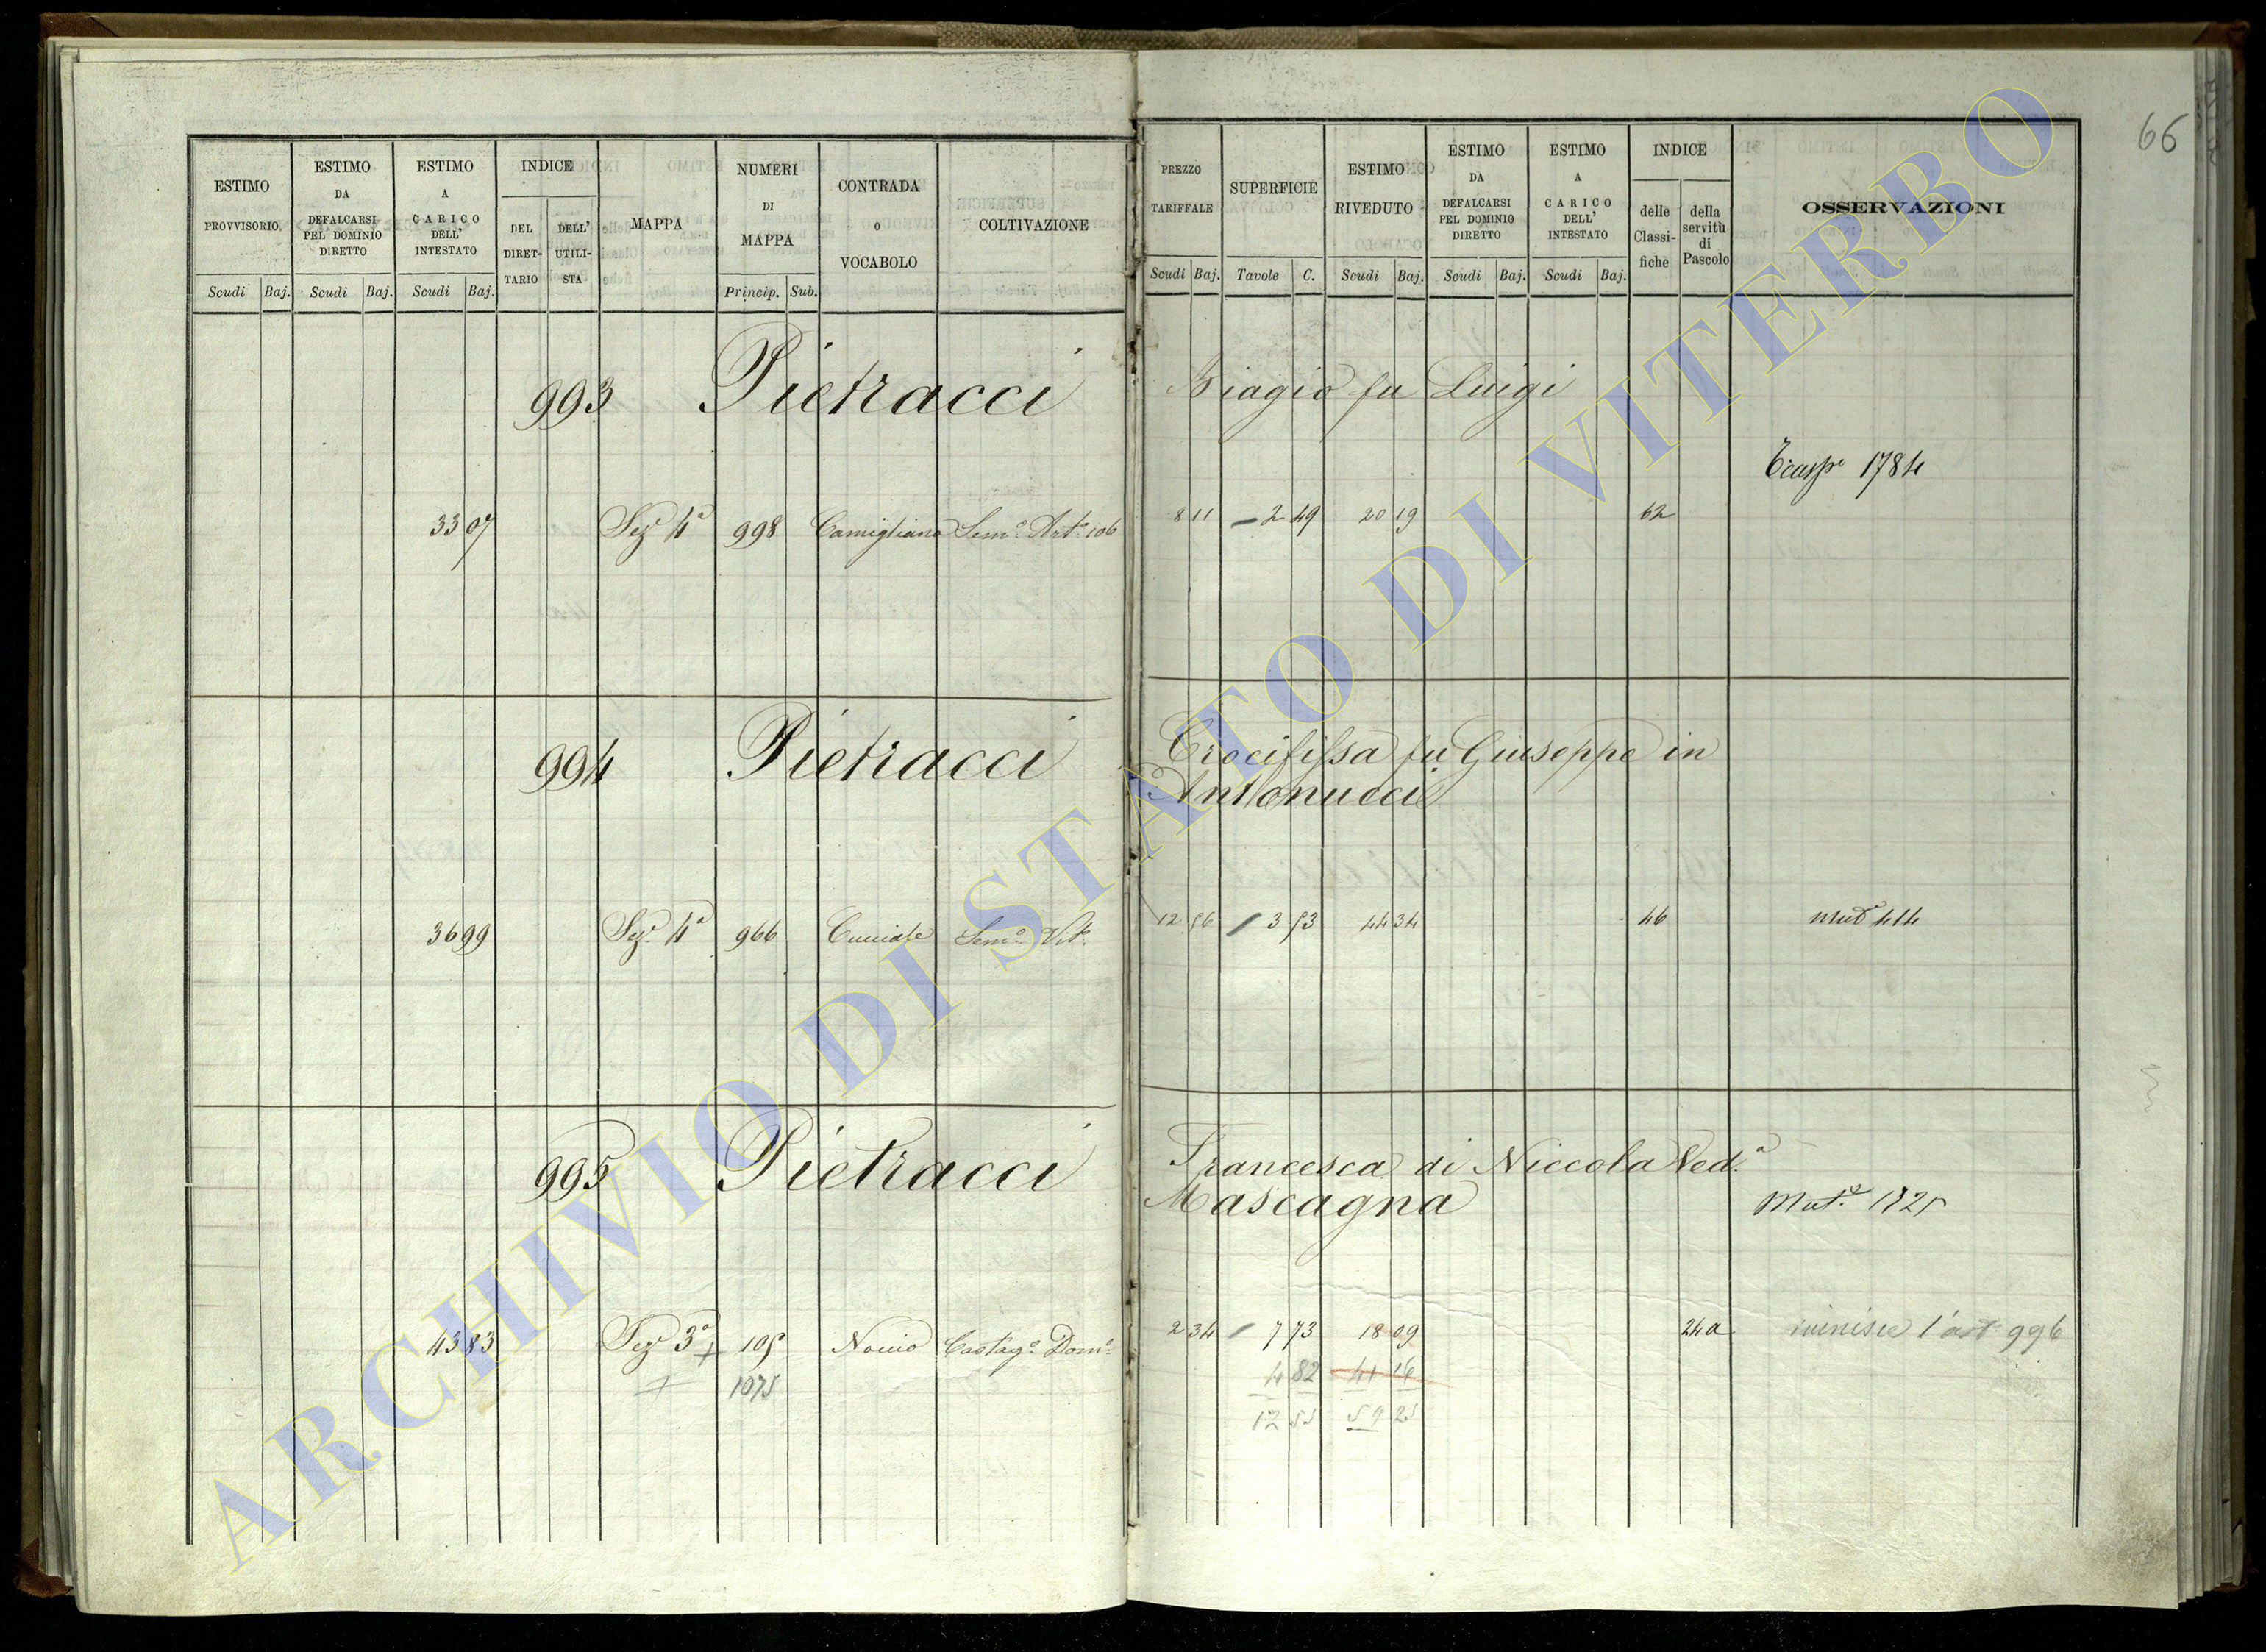 66
ESTIMO PROVVISORIO. Scudi Baj.
ESTIMO DA DEFALCARSI PEL DOMINIO DIRETTO Scudi Baj.
ESTIMO A CARICO DELL' INTESTATO Scudi Baj.
INDICE DEL DIRETTARIO DELL' UTILISTA
MAPPA
NUMERI DI MAPPA Princip. Sub.
CONTRADA O VOCABOLO
COLTIVAZIONE
PREZZO TARIFFALE Scudi Baj.
SUPERFICIE Tavole C.
ESTIMO RIVEDUTO Scudi Baj.
ESTIMO DA DEFALCARSI PEL DOMINIO DIRETTO Scudi Baj.
ESTIMO A CARICO DELL' INTESTATO Scudi Baj.
INDICE delle Classifiche della servitù di Pascolo
OSSERVAZIONI
993 Pietracci Biagio fu Luigi
1784
33 07 Sez.e 4a 998 Camigliano Sem.o Art.o 106 8 11 2 49 20 19 62
994 Pietracci Crocifissa fu Giuseppe in
Antonucci
36 99 Sez.e 4a 966 Cucciale Sem.o Vit.o 12 56 3 53 44 34 46 Mut.e 414
995 Pietracci Francesca di Niccola Ved.a
Mascagna
Mut.e 1825
43 83 Sez.e 3a + 105 Nocio Castag.o Dom.o 2 34 7 73 18 09 24a l'art 996
+ 1075 4 82 41 16
12 55 59 25
ARCHIVIO DI STATO DI VITERBO